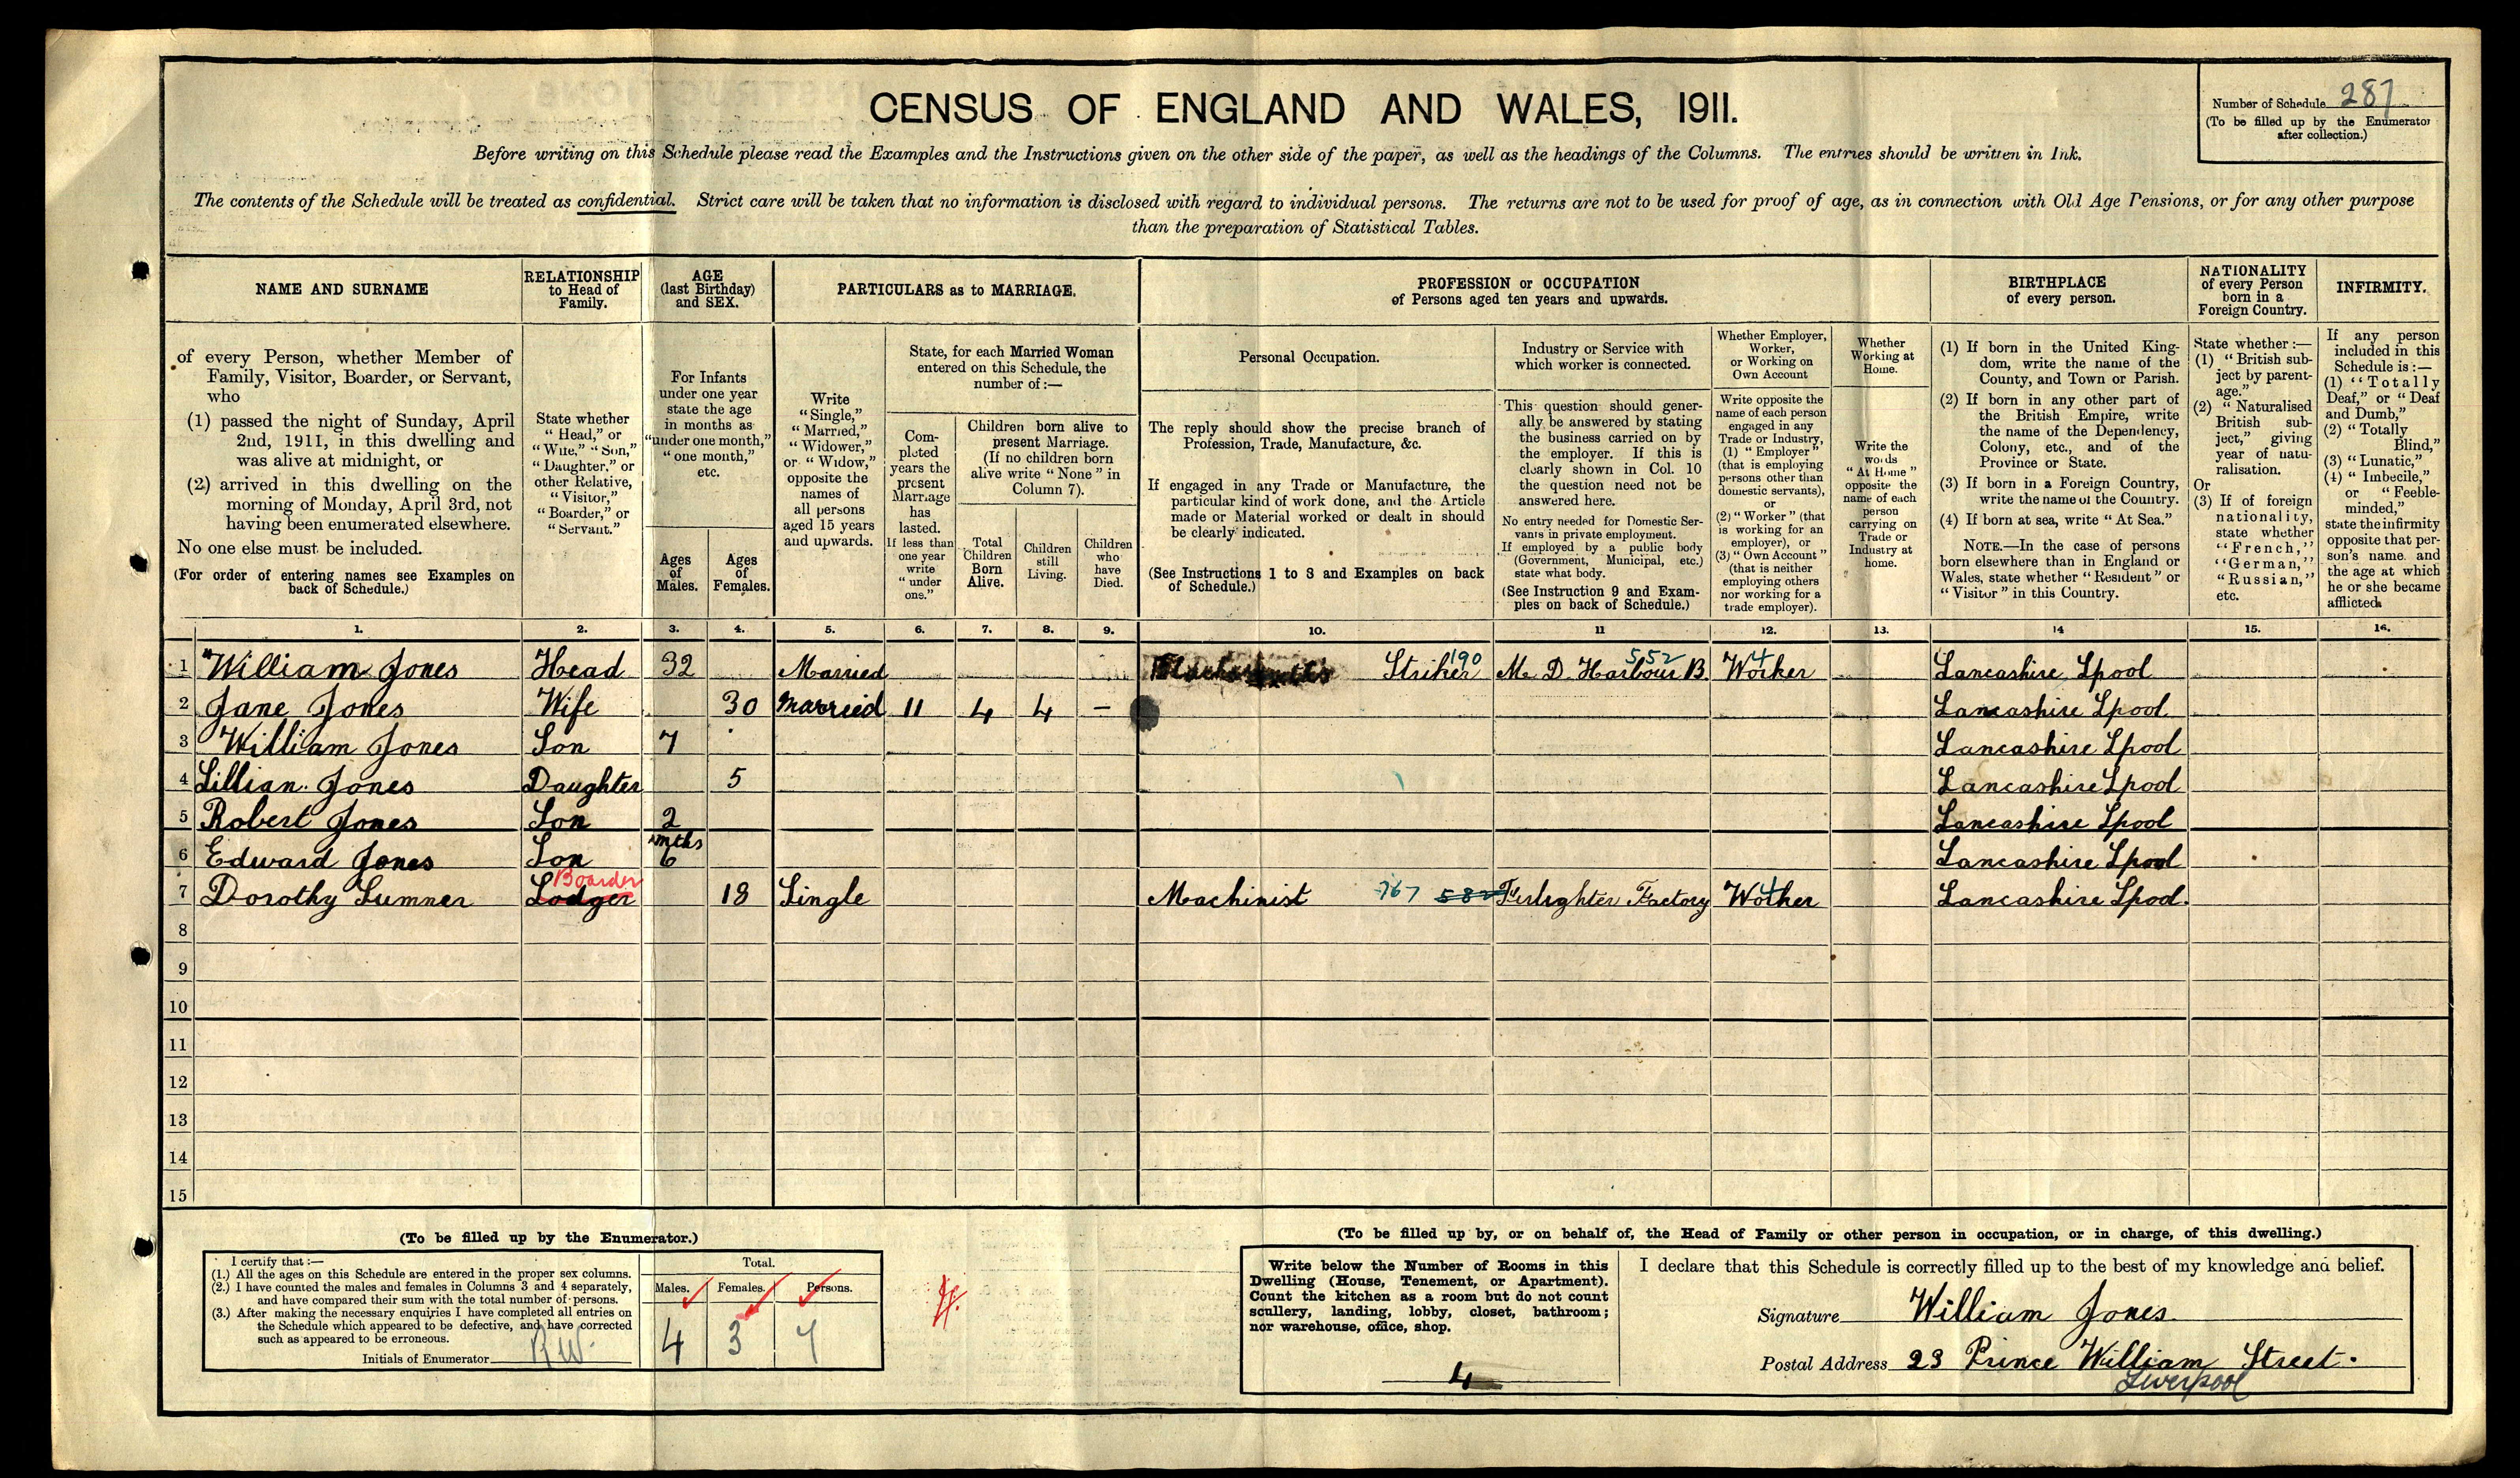 CENSUS OF ENGLAND AND WALES, 1911.
Number of Schedule 287
(To be filled up by the Enumerator
after collection.)
Before writing on this Schedule please read the Examples and the Instructions given on the other side of the paper, as well as the headings of the Columns. The entries should be written in Ink.
The contents of the Schedule will be treated as confidential. Strict care will be taken that no information is disclosed with regard to individual persons. The returns are not to be used for proof of age, as in connection with Old Age Pensions, or for any other purpose
than the preparation of Statistical Tables.
NAME AND SURNAME
RELATIONSHIP
to Head of
Family.
AGE
(last Birthday)
and SEX.
PARTICULARS as to MARRIAGE.
PROFESSION or OCCUPATION
of Persons aged ten years and upwards.
BIRTHPLACE
of every person.
NATIONALITY
of every Person
born in a
Foreign Country.
INFIRMITY.
of every Person, whether Member of
Family, Visitor, Boarder, or Servant,
who
(1) passed the night of Sunday, April
2nd, 1911, in this dwelling and
was alive at midnight, or
(2) arrived in this dwelling on the
morning of Monday, April 3rd, not
having been enumerated elsewhere.
No one else must be included.
(For order of entering names see Examples on
back of Schedule.)
State whether
"Head," or
"Wife," "Son,"
"Daughter," or
other Relative,
"Visitor,"
"Boarder," or
"Servant."
For Infants
under one year
state the age
in months as
"under one month,"
"one month,"
etc.
Ages
of
Males.
Ages
of
Females.
Write
"Single,"
"Married,"
"Widower,"
or "Widow,"
opposite the
names of
all persons
aged 15 years
and upwards.
State, for each Married Woman
entered on this Schedule, the
number of:—
Com-
pleted
years the
present
Marriage
has
lasted.
If less than
one year
write
"under
one."
Children born alive to
present Marriage.
(If no children born
alive write "None" in
Column 7).
Total
Children
Born
Alive.
Children
still
Living.
Children
who
have
Died.
Personal Occupation.
The reply should show the precise branch of
Profession, Trade, Manufacture, &c.
If engaged in any Trade or Manufacture, the
particular kind of work done, and the Article
made or Material worked or dealt in should
be clearly indicated.
(See Instructions 1 to 8 and Examples on back
of Schedule.)
Industry or Service with
which worker is connected.
This question should gener-
ally be answered by stating
the business carried on by
the employer. If this is
clearly shown in Col. 10
the question need not be
answered here.
No entry needed for Domestic Ser-
vants in private employment.
If employed by a public body
(Government, Municipal, etc.)
state what body.
(See Instruction 9 and Exam-
ples on back of Schedule.)
Whether Employer,
Worker,
or Working on
Own Account
Write opposite the
name of each person
engaged in any
Trade or Industry,
(1) "Employer"
(that is employing
persons other than
domestic servants),
or
(2) "Worker" (that
is working for an
employer), or
(3) "Own Account"
(that is neither
employing others
nor working for a
trade employer).
Whether
Working at
Home.
Write the
words
"At Home"
opposite the
name of each
person
carrying on
Trade or
Industry at
home.
(1) If born in the United King-
dom, write the name of the
County, and Town or Parish.
(2) If born in any other part of
the British Empire, write
the name of the Dependency,
Colony, etc., and of the
Province or State.
(3) If born in a Foreign Country,
write the name of the Country.
(4) If born at sea, write "At Sea."
NOTE.—In the case of persons
born elsewhere than in England or
Wales, state whether "Resident" or
"Visitor" in this Country.
State whether:—
(1) "British sub-
ject by parent-
age."
(2) "Naturalised
British sub-
ject," giving
year of natu-
ralisation.
Or
(3) If of foreign
nationality,
state whether
"French,"
"German,"
"Russian,"
etc.
If any person
included in this
Schedule is:—
(1) "Totally
Deaf," or "Deaf
and Dumb,"
(2) "Totally
Blind,"
(3) "Lunatic,"
(4) "Imbecile,"
or "Feeble-
minded,"
state the infirmity
opposite that per-
son's name, and
the age at which
he or she became
afflicted.
1. 2. 3. 4. 5. 6. 7. 8. 9. 10. 11 12. 13. 14 15. 16.
1 William Jones Head 32 Married Blacksmith's Striker 190 M. D. Harbour B. 552 Worker 4 Lancashire Lpool
2 Jane Jones Wife 30 Married 11 4 4 – Lancashire Lpool.
3 William Jones Son 7 Lancashire Lpool
4 Lillian. Jones Daughter 5 Lancashire Lpool
5 Robert Jones Son 2 Lancashire Lpool
6 Edward Jones Son mths 6 Lancashire Lpool
7 Dorothy Sumner Lodger Boarder 18 Single Machinist 767 582 Firlighter Factory Worker 4 Lancashire Lpool.
8
9
10
11
12
13
14
15
(To be filled up by the Enumerator.)
I certify that:—
(1.) All the ages on this Schedule are entered in the proper sex columns.
(2.) I have counted the males and females in Columns 3 and 4 separately,
and have compared their sum with the total number of persons.
(3.) After making the necessary enquiries I have completed all entries on
the Schedule which appeared to be defective, and have corrected
such as appeared to be erroneous.
Initials of Enumerator RW.
Total.
Males. Females. Persons.
4 3 7
(To be filled up by, or on behalf of, the Head of Family or other person in occupation, or in charge, of this dwelling.)
Write below the Number of Rooms in this
Dwelling (House, Tenement, or Apartment).
Count the kitchen as a room but do not count
scullery, landing, lobby, closet, bathroom;
nor warehouse, office, shop.
4
I declare that this Schedule is correctly filled up to the best of my knowledge and belief.
Signature William Jones.
Postal Address 23 Prince William Street.
Liverpool